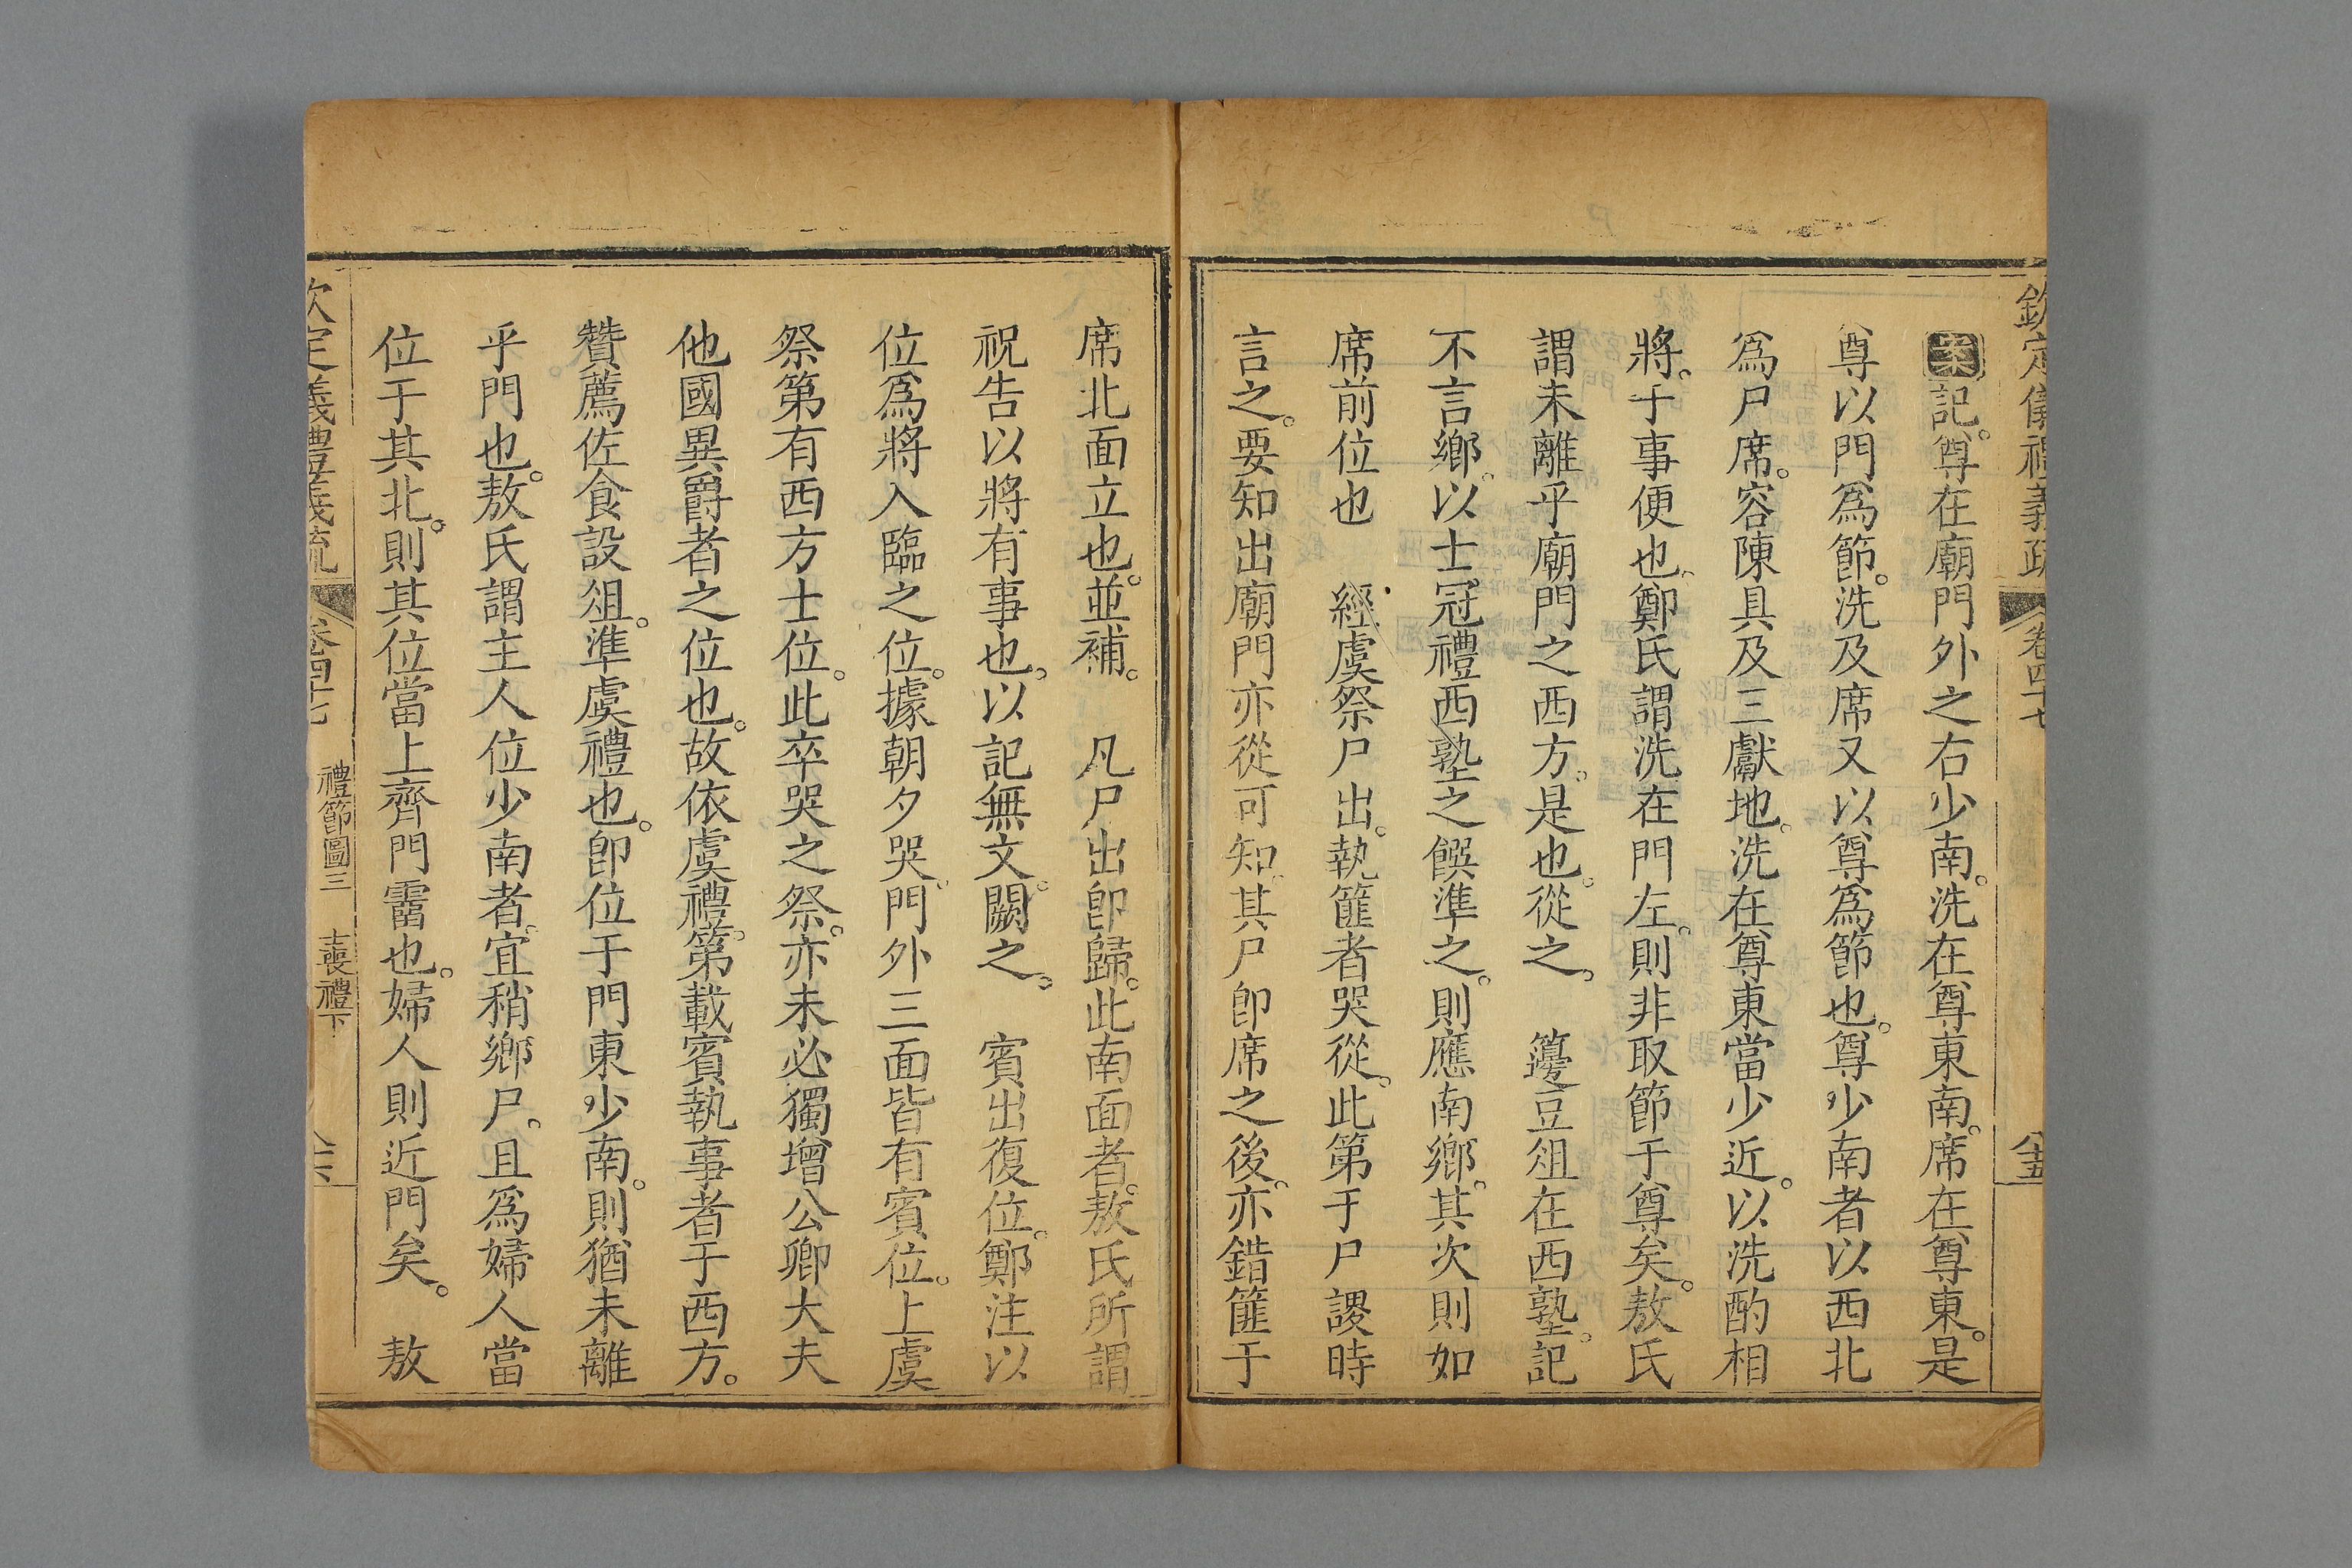 欽定儀禮義疏 卷四十七 八十五
案記。尊在廟門外之右少南。洗在尊東南。席在尊東。是
尊以門爲節。洗及席又以尊爲節也。尊少南者以西北
爲尸席。容陳具及三獻地。洗在尊東當少近。以洗酌相
將。于事便也。鄭氏謂洗在門左。則非取節于尊矣。敖氏
謂未離乎廟門之西方。是也。從之。 籩豆俎在西塾。記
不言鄉。以士冠禮西塾之饌準之。則應南鄉。其次則如
席前位也 經虞祭尸出。執篚者哭從。此第于尸謖時
言之。要知出廟門亦從可知。其尸卽席之後。亦錯篚于
席北面立也。並補。 凡尸出卽歸。此南面者。敖氏所謂
祝告以將有事也。以記無文。闕之。 賓出復位。鄭注以
位爲將入臨之位。據朝夕哭。門外三面皆有賓位。上虞
祭第有西方士位。此卒哭之祭。亦未必獨增公卿大夫
他國異爵者之位也。故依虞禮。第載賓執事者于西方。
贊薦佐食設俎。準虞禮也。卽位于門東少南。則猶未離
乎門也。敖氏謂主人位少南者。宜稍鄉尸。且爲婦人當
位于其北。則其位當上齊門霤也。婦人則近門矣。 敖
欽定儀禮義疏 卷四十七 禮節圖三 士喪禮下 八十六